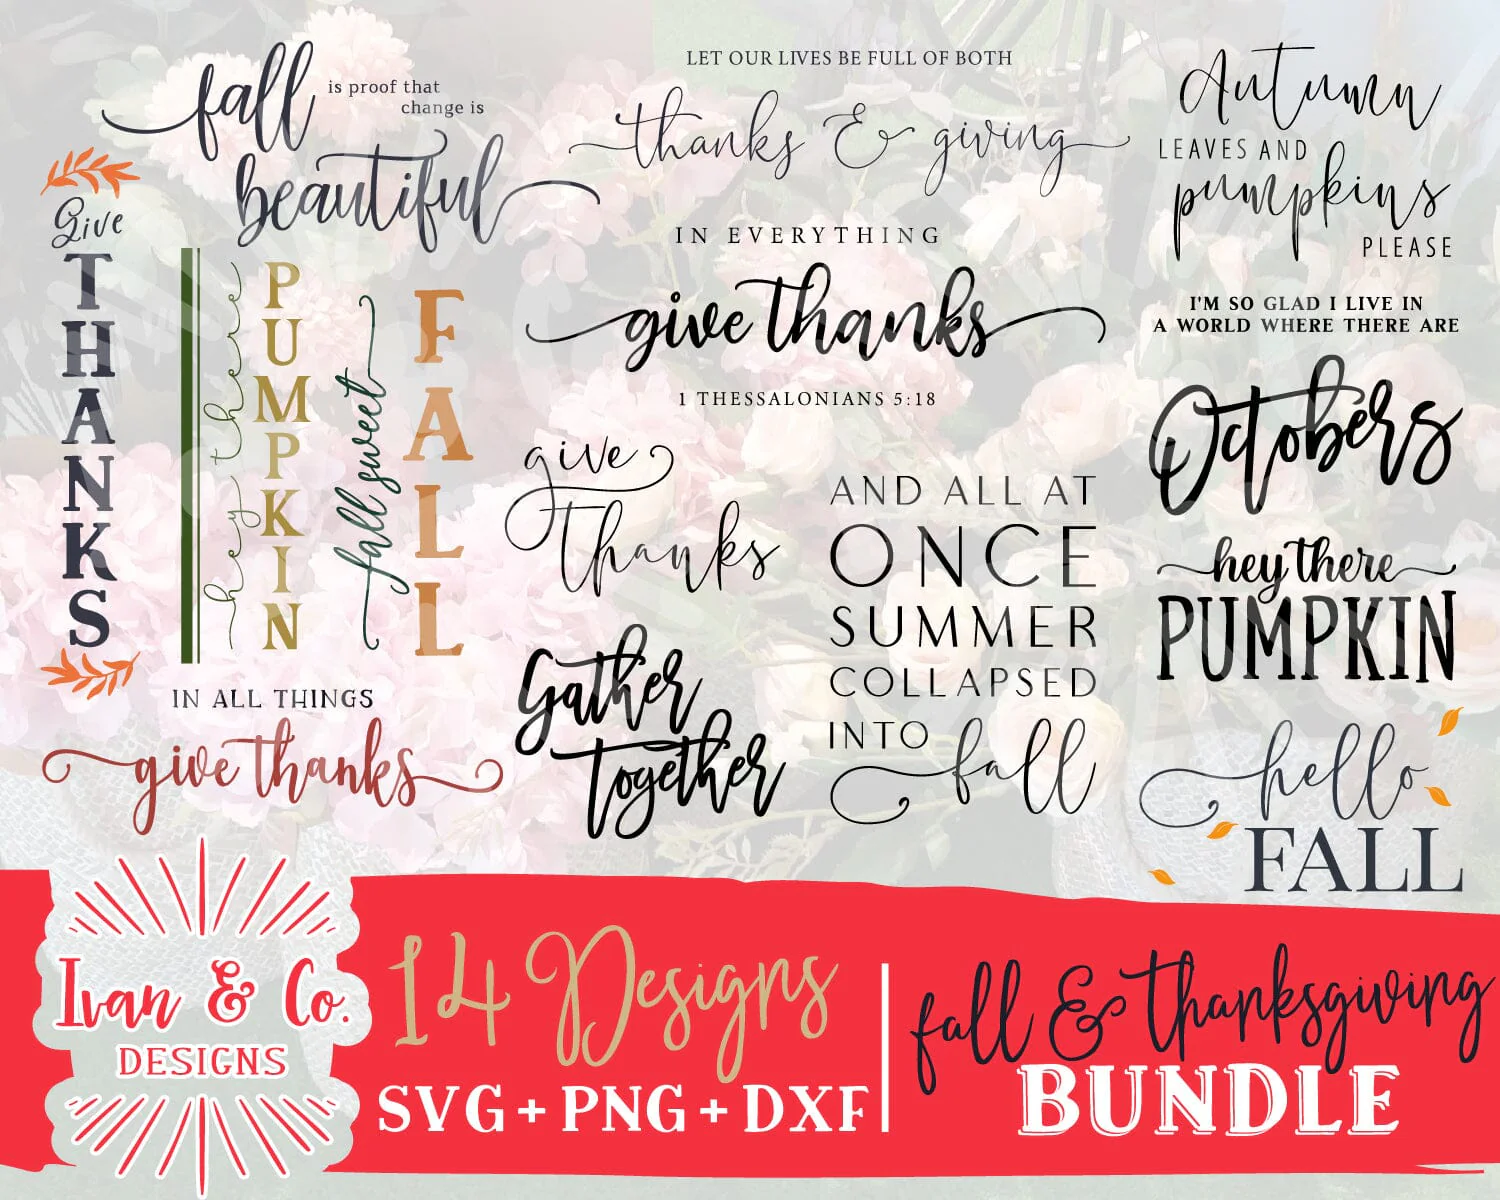 fall is proof that
change is
beautiful
Give
THANKS
hey there
PUMPKIN
fall sweet
FALL
IN ALL THINGS
give thanks
LET OUR LIVES BE FULL OF BOTH
thanks & giving
IN EVERYTHING
give thanks
1 THESSALONIANS 5:18
give
thanks
Gather
Together
AND ALL AT
ONCE
SUMMER
COLLAPSED
INTO fall
Autumn
LEAVES AND
pumpkins
PLEASE
I'M SO GLAD I LIVE IN
A WORLD WHERE THERE ARE
Octobers
hey there
PUMPKIN
hello
FALL
Ivan & Co.
DESIGNS
14 Designs
SVG + PNG + DXF
fall & thanksgiving
BUNDLE